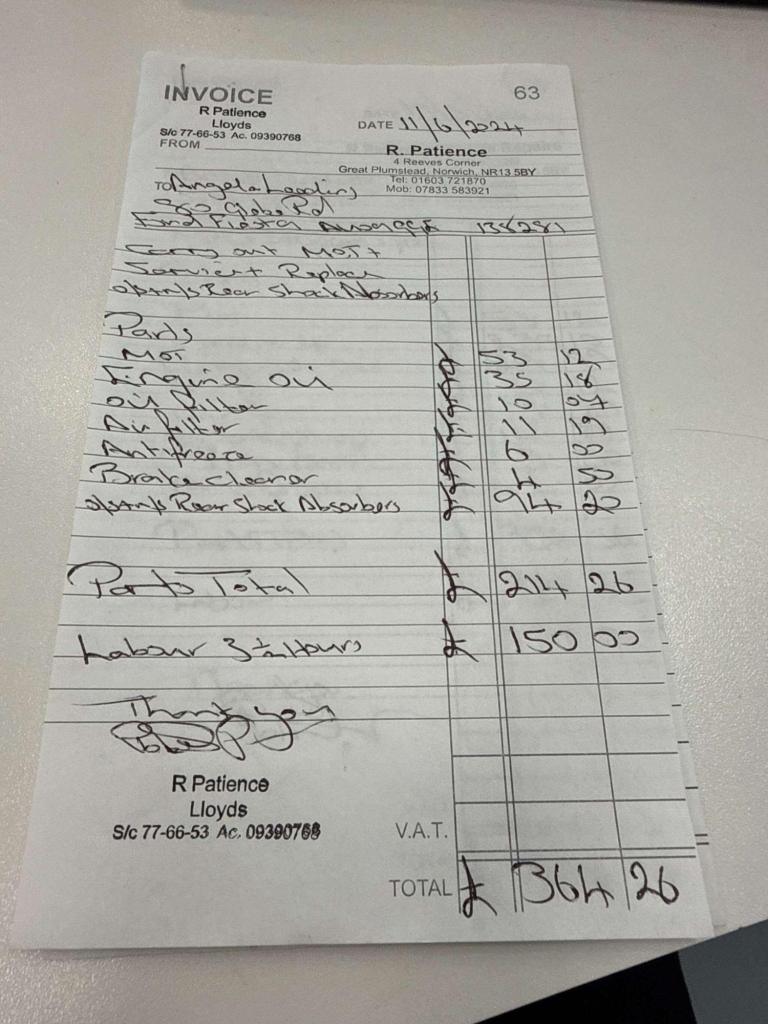 INVOICE
63
R Patience
Lloyds
S/c 77-66-53 Ac. 09390768
DATE 11/6/2024
FROM
R. Patience
4 Reeves Corner
Great Plumstead, Norwich, NR13 5BY
Tel: 01603 721870
Mob: 07833 583921
TO Angela
Globe Rd
Ford Fiesta 138281
Carry out MOT +
Service + Replace
o/s + n/s Rear Shock Absorbers
Parts
MOT £ 53 12
Engine Oil £ 35 18
Oil filter £ 10 07
Air filter £ 11 19
Antifreeze £ 6 00
Brake cleaner £ 4 50
o/s + n/s Rear Shock Absorbers £ 94 20
Parts Total £ 214 26
Labour 3 ½ Hours £ 150 00
Thank you
R Patience
Lloyds
S/c 77-66-53 Ac. 09390768
V.A.T.
TOTAL £ 364 26